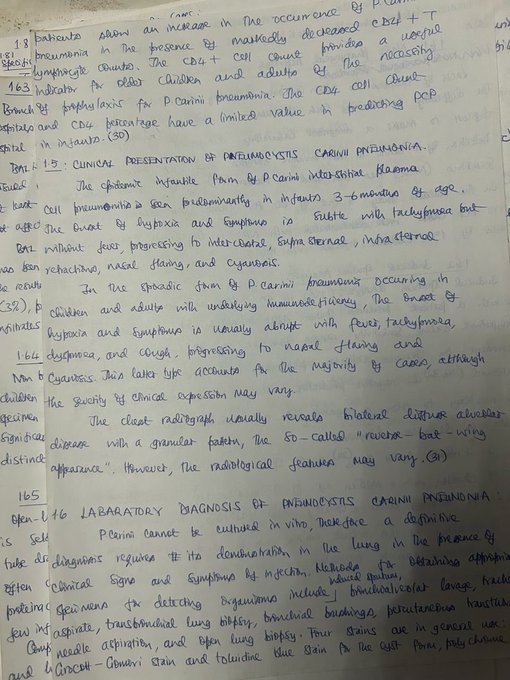 patients show an increase in the occurrence of P. Carinii
pneumonia in the presence of markedly decreased CD4 + T
lymphocyte counts. The CD4 + cell count provides a useful
indicator for older children and adults of the necessity
of prophylaxis for P. Carinii pneumonia. The CD4 cell count
and CD4 percentage have a limited value in predicting PCP
in infants. (30)
1.5 : CLINICAL PRESENTATION OF PNEUMOCYSTIS CARINII PNEUMONIA.
The epidemic infantile form of P. Carini interstitial plasma
cell pneumonitis is seen predominantly in infants 3-6 months of age.
The onset of hypoxia and symptoms is subtle with tachypnoea but
without fever, progressing to intercostal, suprasternal, infrasternal
retractions, nasal flaring, and cyanosis.
In the sporadic form of P. carinii pneumonia occuring in
children and adults with underlying immunodeficiency, the onset of
hypoxia and symptoms is usually abrupt with fever, tachypnoea,
dyspnoea, and cough, progressing to nasal flaring and
cyanosis. This latter type accounts for the majority of cases, although
the severity of clinical expression may vary.
The chest radiograph usually reveals bilateral diffuse alveolar
disease with a granular pattern, the so-called "reverse-bat-wing
appearance". However, the radiological features may vary. (31)
1.6 LABARATORY DIAGNOSIS OF PNEUMOCYSTIS CARINII PNEUMONIA :
P. Carinii cannot be cultured in vitro, therefore a definitive
diagnosis requires its demonstration in the lung in the presence of
clinical signs and symptoms of infection. Methods for obtaining appropria
specimens for detecting organisms include induced sputum, bronchoalveolar lavage, trache
aspirate, transbronchial lung biopsy, bronchial brushings, percutaneous transtho
needle aspiration, and open lung biopsy. Four stains are in general use:
Grocott-Gomori stain and toluidine blue stain for the cyst form, polychrome
18
1.81
163
Bronch
spital
BAL
at least
BAL
has been
(3%), p
infiltrates
1.64
Non b
children
specimen
significa
distinct
165
Open-l
is
tube
often
proteinac
few inf
Comp
and